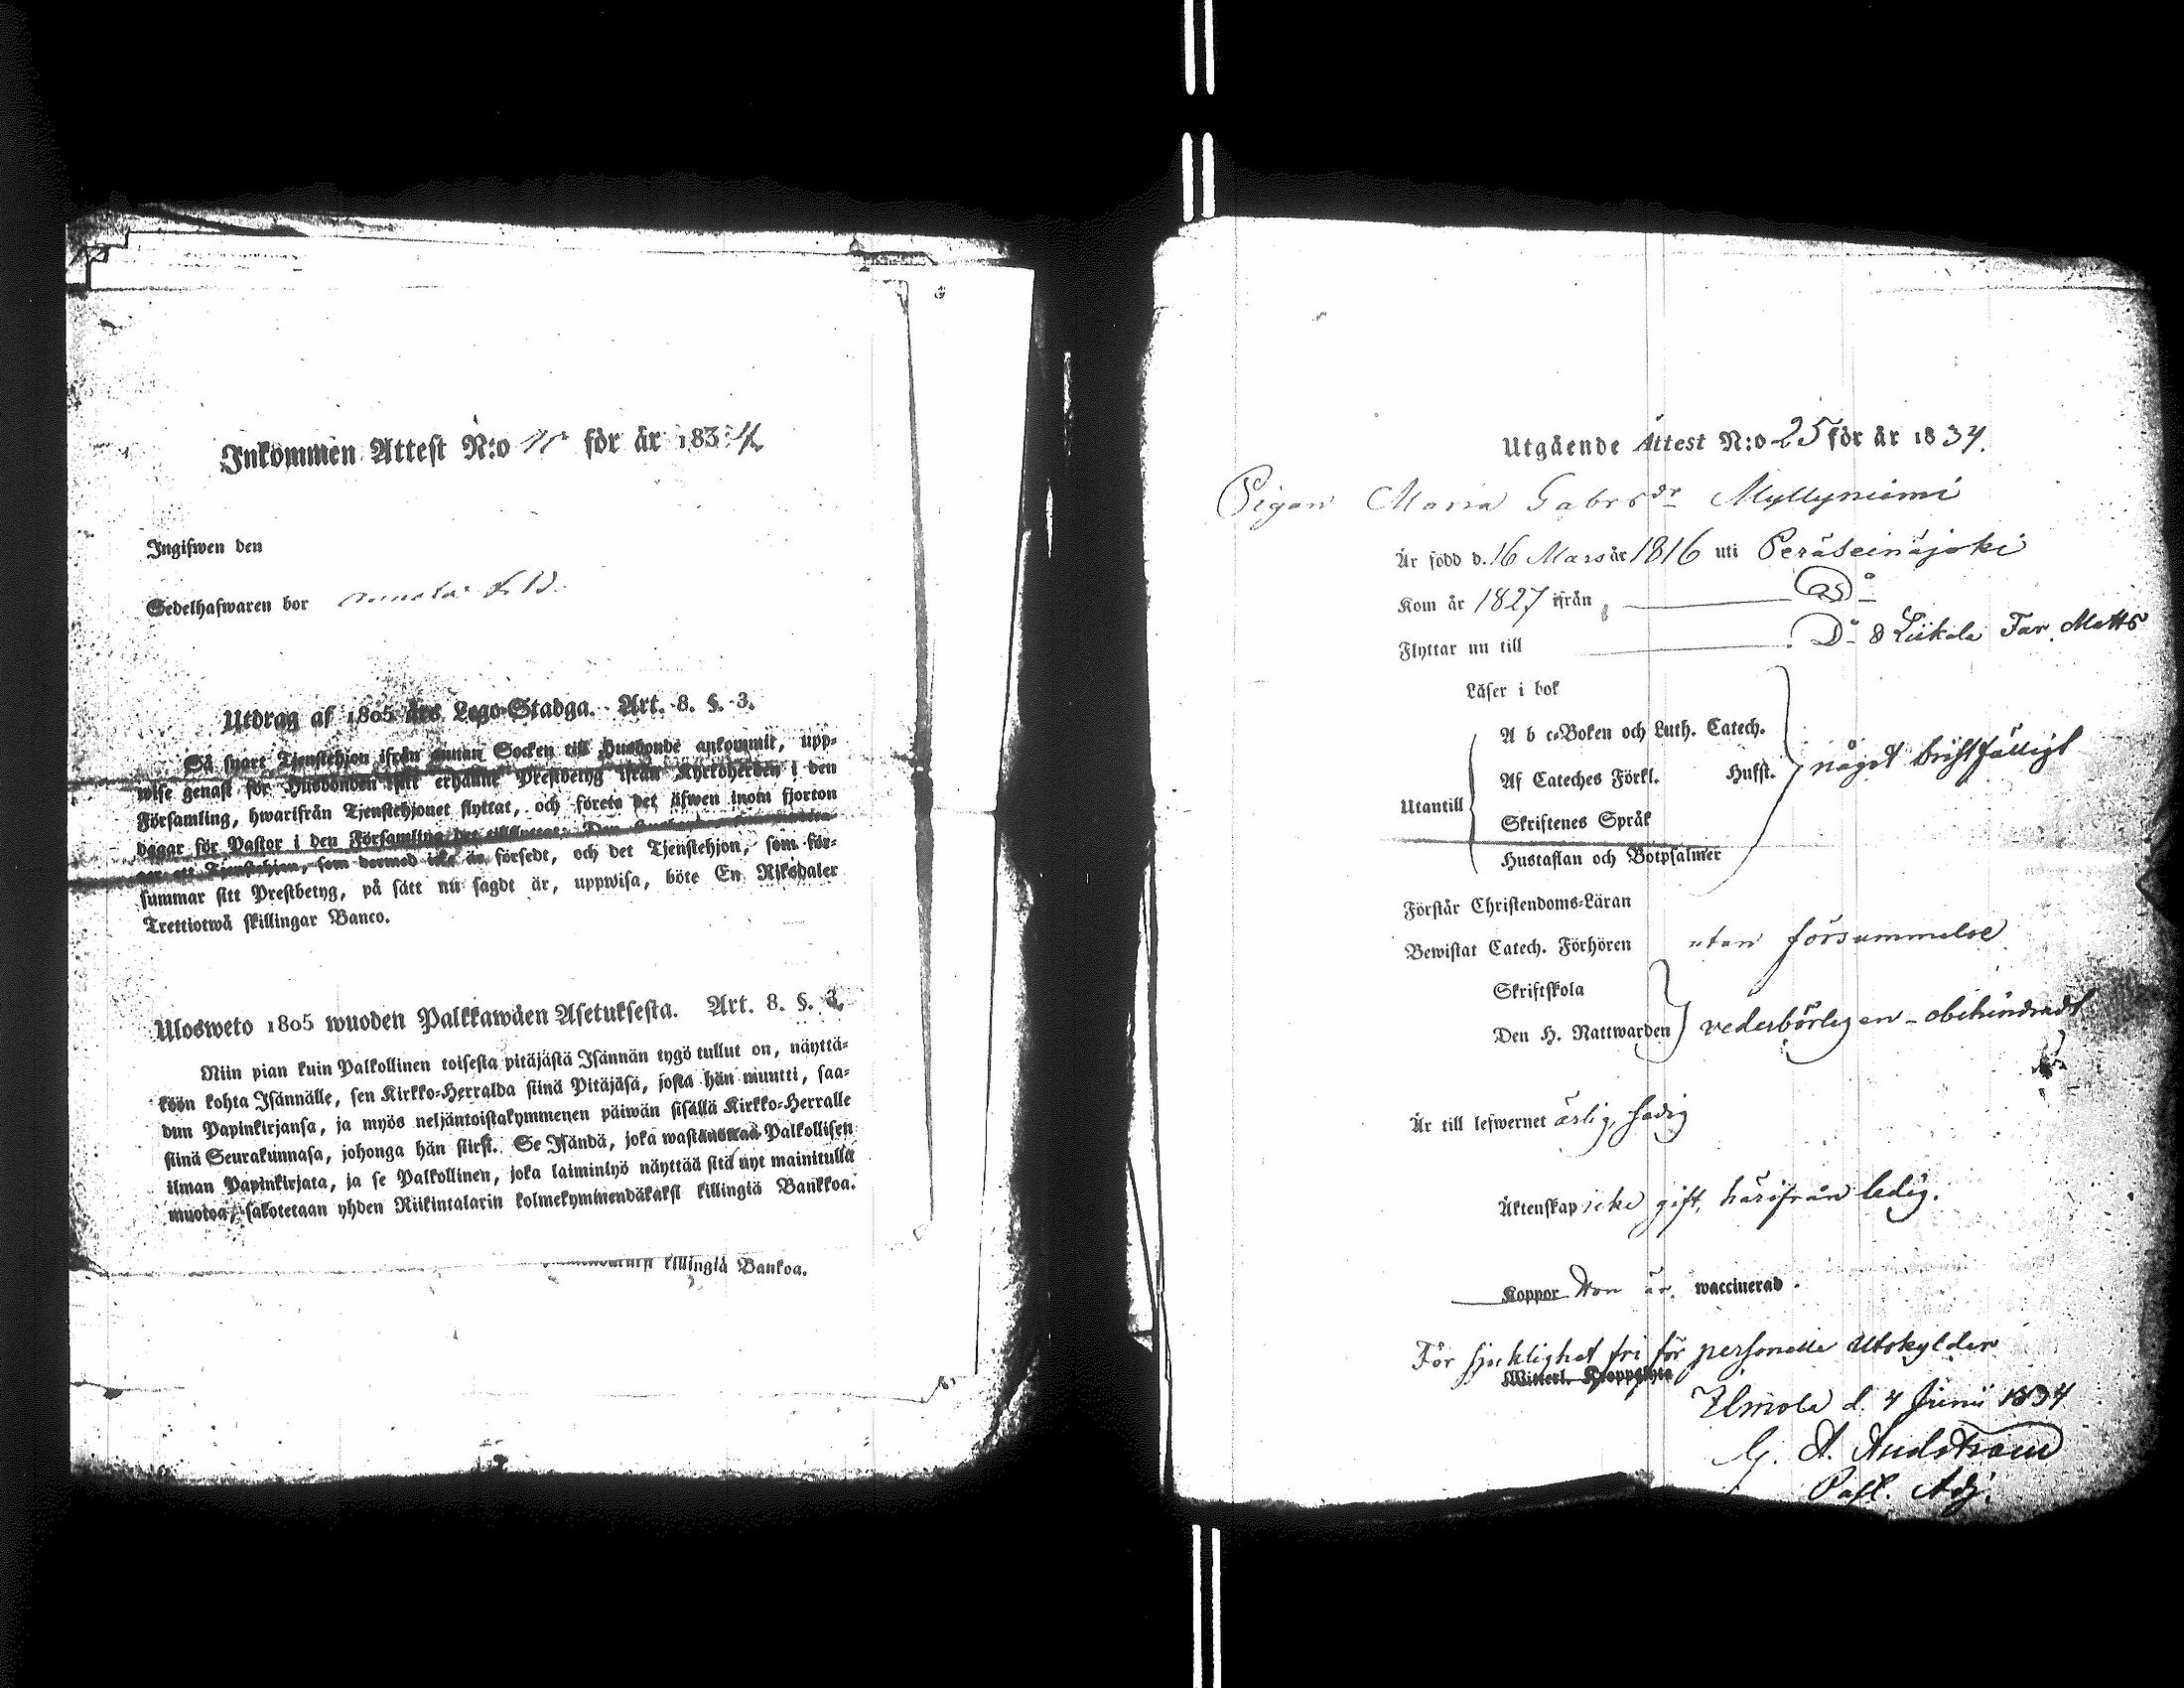 Inkommen Attest N:o för år 1834
Ingifwen den
Sedelhafwaren bor
Utdrag af 1805 års Lego-Stadga. Art. 8. §. 3.
Så snart Tjenstehjon ifrån annan Socken till Husbonde ankommit, upp-
wise genast för Husbonden sitt erhållne Prestbetyg ifrån Kyrkoherden i den
Församling, hwarifrån Tjenstehjonet flyttat, och förete det äfwen inom fjorton
dagar för Pastor i den Församling det tillflyttat. Den
Tjenstehjon, som dermed icke är försedt, och det Tjenstehjon, som för-
summar sitt Prestbetyg, på sätt nu sagdt är, uppwisa, böte En Riksdaler
Trettiotwå skillingar Banco.
Ulosweto 1805 wuoden Palkkawäen Asetuksesta. Art. 8. §. 3.
Niin pian kuin Palkollinen toisesta pitäjästä Isännän tygö tullut on, näyttä-
köön kohta Isännälle, sen Kirkko-Herralda siinä Pitäjäsä, josta hän muutti, saa-
dun Papinkirjansa, ja myös neljäntoistakymmenen päiwän sisällä Kirkko-Herralle
siinä Seurakunnasa, johonga hän siirst. Se Isändä, joka wastanottaa Palkollisen
ilman Papinkirjata, ja se Palkollinen, joka laiminlyö näyttää sitä nyt mainitulla
muotoa, sakotetaan yhden Riikintalarin kolmekymmendäkaksi killingiä Bankkoa.
killingiä Bankoa.
Utgående Attest N:o 25 för år 1834.
Pigan Maria Gabrsdr Myllyniemi
Är född d. 16 Mars år 1816 uti Peräseinäjoki
Kom år 1827 ifrån Do
Flyttar nu till Do 8 Liikala Far. Matts
Läser i bok
A b c-Boken och Luth. Catech.
Af Cateches Förkl. Hufst. något bristfälligt
Utantill
Skriftenes Språk
Hustaflan och Botpsalmer
Förstår Christendoms-Läran
Bewistat Catech. Förhören utan försummelse
Skriftskola
Den H. Nattwarden vederbörligen - obehindradt
Är till lefwernet ärlig, sedig
Äktenskap icke gift, härifrån ledig.
Koppor Hon är waccinerad.
För sjuklighet fri för personella Utskylder
Witterl. Kroppslyte
Ilmola d. 4 Junii 1834
G. A. Andstrom
Past. Adj.